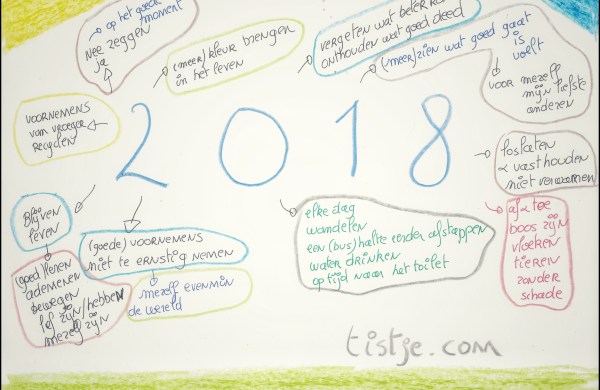 op het goede
moment
nee zeggen
ja
(meer) kleur brengen
in het leven
vergeten wat beter kan
onthouden wat goed deed
(meer) zien wat goed gaat
is
voelt
voor mezelf
mijn liefste
anderen
VOORNEMENS
van vroeger
recyclen
2018
loslaten
& vasthouden
niet verwarren
blijven
leven
(goed) leren
ademenen
bewegen
lief zijn/hebben
mezelf zijn
(goede) VOORNEMENS
niet te ernstig nemen
mezelf evenmin
de wereld
elke dag
wandelen
een (bus)halte eerder afstappen
water drinken
op tijd naar het toilet
af & toe
boos zijn
vloeken
tieren
zonder
schade
tistje.com